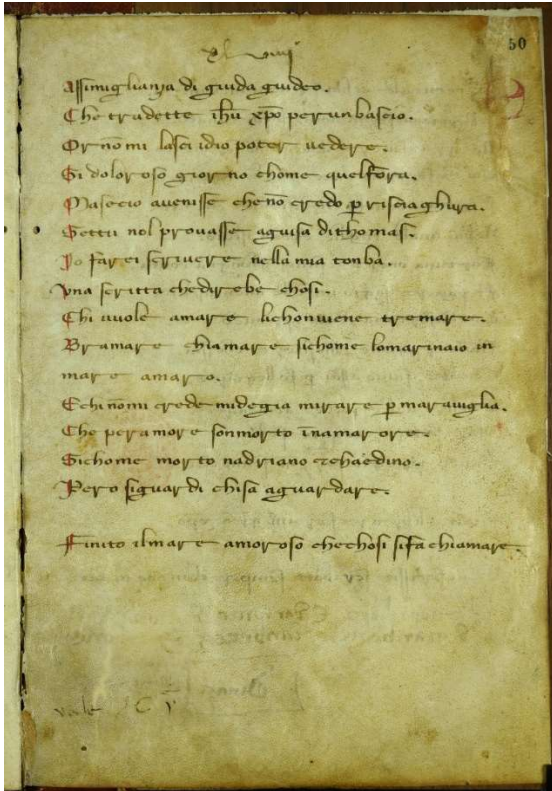 xl viiij
50
Assimiglianza di guida guideo.
Che tradette ihū xpō per un bascio.
Or nō mi lasci idio poter uedere.
Si doloroso giorno chome quel fora.
Masecio auenisse che nō credo ꝑ risciaghura.
Settu nol prouasse aguisa dithomas.
Io farei scriuere nella mia tonba.
Una scritta chedirebe chosi.
Chi uuole amare lichonuiene tremare.
Bramare chiamare sichome lomarinaio in
mare amaro.
Echi nōmi crede midegia mirare ꝑ marauiglia.
Che peramore son morto īnamarore.
Sichome morto nadriano ⁊chaedino.
Pero siguardi chisa aguardare.
Finito ilmare amoroso chechosi sifa chiamare.
vale